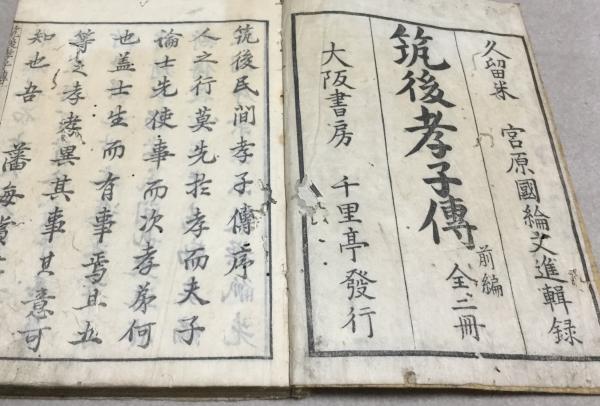 久留米 宮原國綸文進輯録
筑後孝子傳 前編 全二冊
大阪書房 千里亭發行
筑後民間孝子傳序
人之行莫先於孝而夫子
論士先使事而次孝弟何
也盖士生而有事焉且五
等之孝孝異其事其意可
知也吾 藩每賞